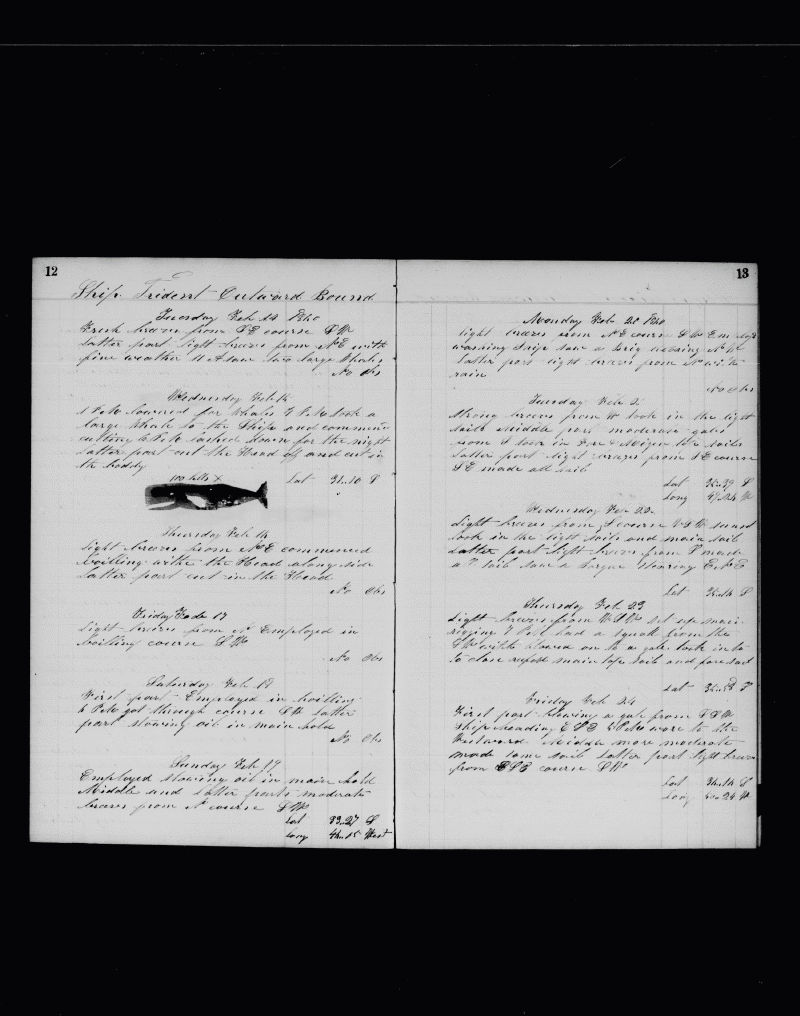 12
Ship Trident Outward Bound
Tuesday Feb 14
Fresh breezes from SE course SW
latter part light breezes from NE with
fine weather 11 A saw two large Whales
No Obs
Wednesday Feb 15
1 PM lowered for Whales 7 PM took a
large Whale to the Ship and commenc
cutting 6 PM lashed down for the night
latter part cut the Head off and cut in
the boddy
100 blls
Lat 31..10 S
Thursday Feb 16
light breezes from NE commenced
boiling with the Head along side
latter part cut in the Head
No Obs
Friday Feb 17
Light breezes from N Employed in
boiling course SW
No Obs
Saturday Feb 18
First part Employed in boiling
6 PM got through course SW latter
part stowing oil in main hold
No Obs
Sunday Feb 19
Employed stowing oil in main hold
Middle and latter parts moderate
breezes from N course SW
Lat 33..27 S
Long West
13
Monday Feb 20
light breezes from NE course SW Employd
washing Ship saw a Brig steering
latter part light breezes from N with
rain
No Obs
Tuesday Feb 21
Strong breezes from took in the light
sails Middle part moderate gales
from S took in Fore & Mizen top sails
latter part light breezes from SE course
made all sail
Lat S
Long W
Wednesday Feb 22
Light breezes from course sunset
took in the light sails and main sail
latter part light breezes from made
all sail saw a Barque steering
Lat S
Thursday Feb 23
Light breezes from set up main
rigging 7 PM had a squall from the
SW with blowed on to a gale took in to
to close reefed main top sail and fore sail
Lat S
Friday Feb 24
First part blowing a gale from SSW
Ship heading ESE wore to the
Westward Middle more moderate
made some sail latter part light breezes
from ESE course SW
Lat S
Long W